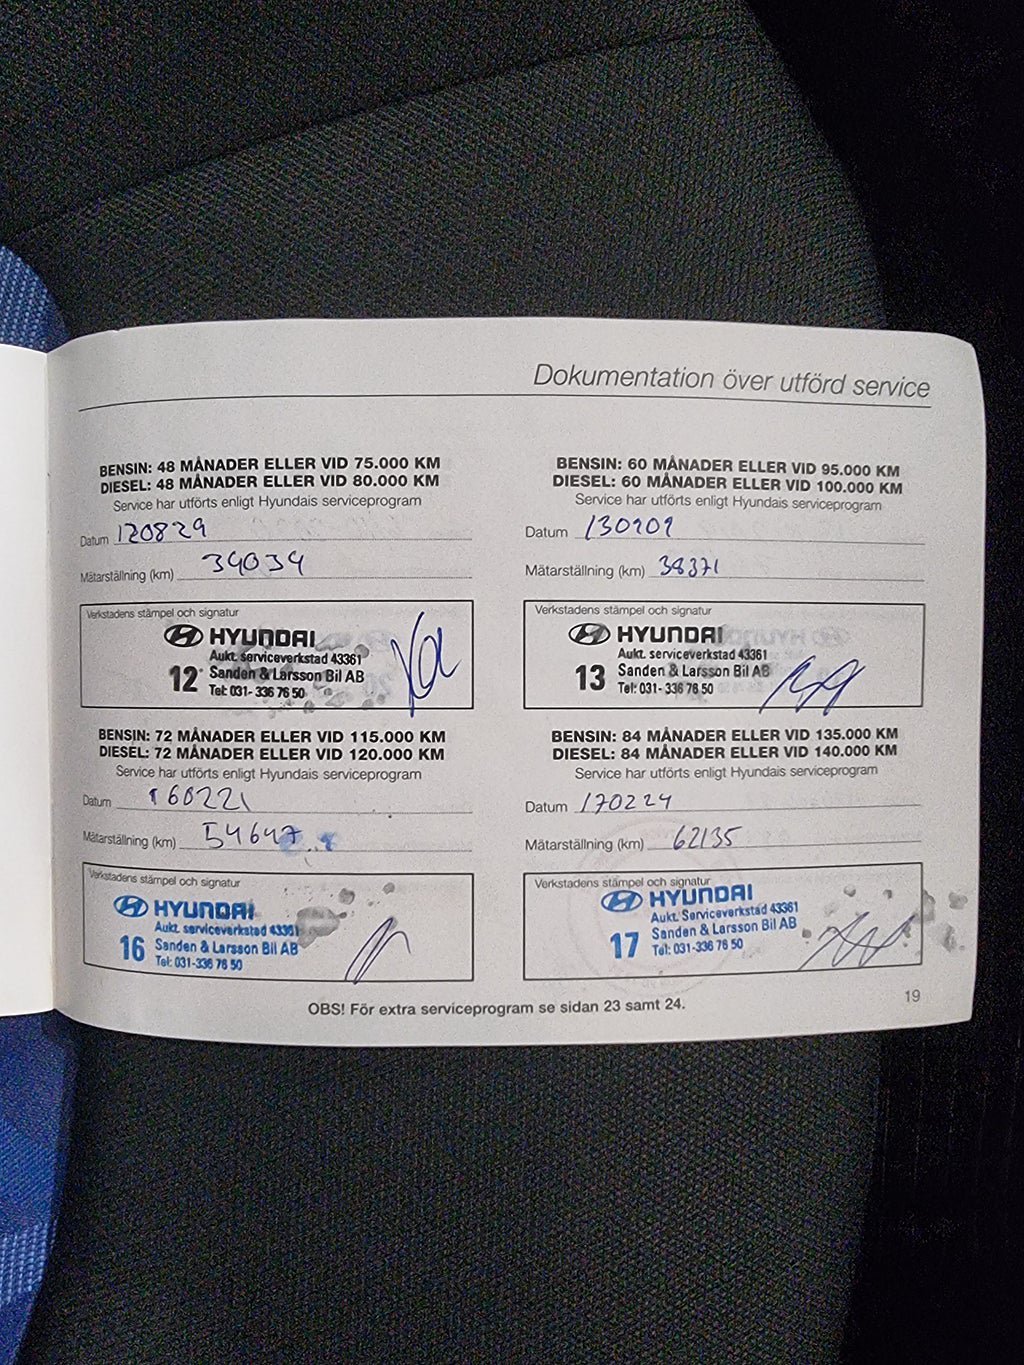 Dokumentation över utförd service
BENSIN: 48 MÅNADER ELLER VID 75.000 KM
DIESEL: 48 MÅNADER ELLER VID 80.000 KM
Service har utförts enligt Hyundais serviceprogram
Datum 120829
Mätarställning (km) 34034
Verkstadens stämpel och signatur
HYUNDAI
Aukt. serviceverkstad 43361
12 Sanden & Larsson Bil AB
Tel: 031- 336 76 50
BENSIN: 60 MÅNADER ELLER VID 95.000 KM
DIESEL: 60 MÅNADER ELLER VID 100.000 KM
Service har utförts enligt Hyundais serviceprogram
Datum 130909
Mätarställning (km) 38371
Verkstadens stämpel och signatur
HYUNDAI
Aukt. serviceverkstad 43361
13 Sanden & Larsson Bil AB
Tel: 031- 336 76 50
BENSIN: 72 MÅNADER ELLER VID 115.000 KM
DIESEL: 72 MÅNADER ELLER VID 120.000 KM
Service har utförts enligt Hyundais serviceprogram
Datum 160221
Mätarställning (km) 54647
Verkstadens stämpel och signatur
HYUNDAI
Aukt. serviceverkstad 43361
16 Sanden & Larsson Bil AB
Tel: 031-336 76 50
BENSIN: 84 MÅNADER ELLER VID 135.000 KM
DIESEL: 84 MÅNADER ELLER VID 140.000 KM
Service har utförts enligt Hyundais serviceprogram
Datum 170224
Mätarställning (km) 62135
Verkstadens stämpel och signatur
HYUNDAI
Aukt. Serviceverkstad 43361
17 Sanden & Larsson Bil AB
Tel: 031-336 76 50
OBS! För extra serviceprogram se sidan 23 samt 24.
19